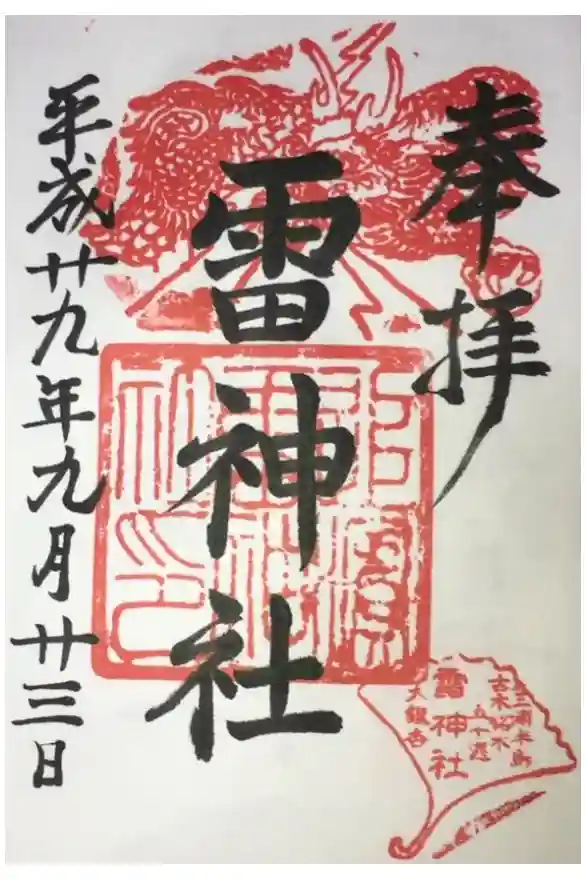 奉拝
雷神社
平成廿九年九月廿三日
三浦半島
古木名木
五十選
雷神社
大銀杏